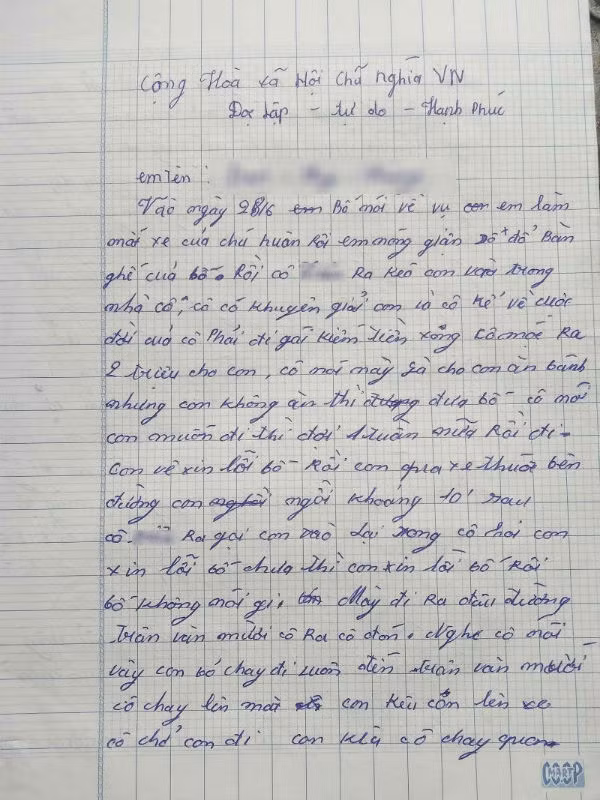 Cộng Hoà Xã Hội Chủ Nghĩa VN
Độc Lập - Tự do - Hạnh Phúc
em tên :
Vào ngày 28/6 Bố nói về vụ em làm
mất xe của chú huân Rồi em nóng giận xô đổ Bàn
ghế của bố. Rồi cô Ra kéo con vào trong
nhà cô, cô có khuyên giải con là cô kể về cuộc
đời của cô Phải đi gái kiếm tiền xong cô móc Ra
2 triệu cho con, cô nói này là cho con ăn bánh
nhưng con không ăn thì đưa bố - cô nói
con muốn đi thì đợi 1 tuần nữa Rồi đi.
Con về xin lỗi bố Rồi con qua xe thuốc bên
đường con ngồi khoảng 10' sau
cô. Ra gọi con vào lại xong cô hỏi con
xin lỗi bố chưa thì con xin lỗi bố Rồi
bố không nói gì. Mày đi Ra đầu đường
trần văn mười cô Ra cô đón. Nghe cô nói
vậy con bỏ chạy đi luôn đến trần văn mười
cô chạy lên mà con kêu con lên xe
cô chở con đi con kêu cô chạy
COOP
MART